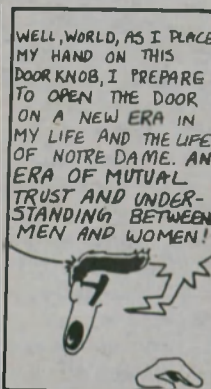 WELL, WORLD, AS I PLACE
MY HAND ON THIS
DOORKNOB, I PREPARE
TO OPEN THE DOOR
ON A NEW ERA IN
MY LIFE AND THE LIFE
OF NOTRE DAME. AN
ERA OF MUTUAL
TRUST AND UNDER-
STANDING BETWEEN
MEN AND WOMEN!